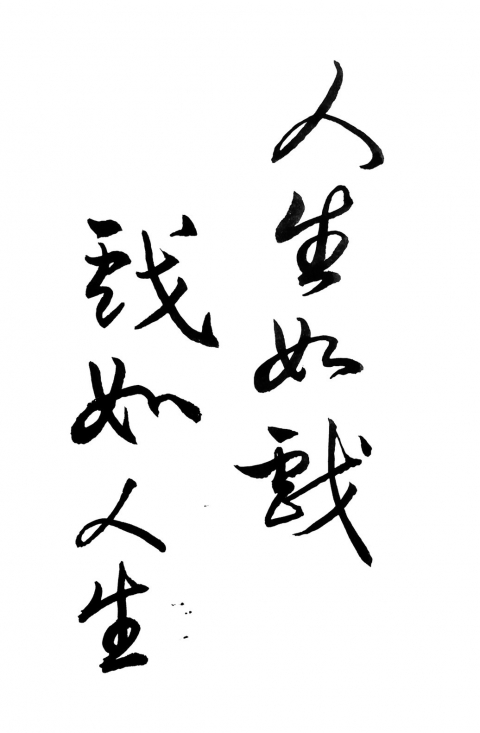 人生如戲
戲如人生